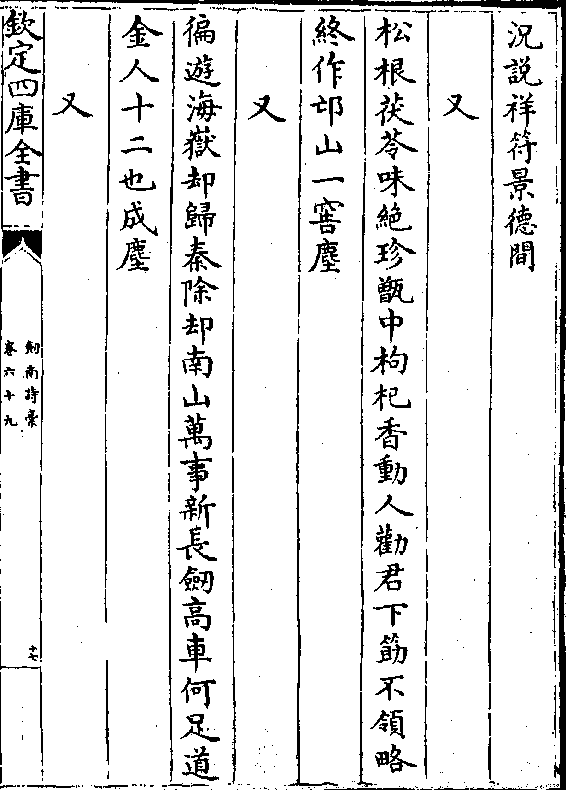 況説祥符景德間
又
松根茯苓味絶珍甑中枸杞香動人勸君下筯不領略
終作邙山一窖塵
又
徧遊海嶽却歸秦除却南山萬事新長劒高車何足道
金人十二也成塵
又
欽定四庫全書
劒南詩稾
卷六十九
十七